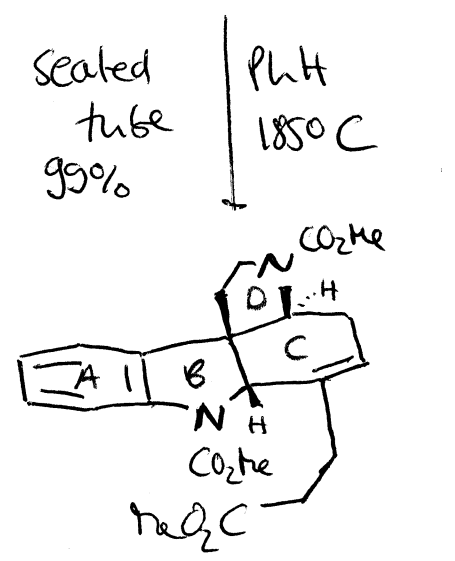 Sealed
tube
99%
PhH
185° C
CO₂Me
N
D
H
C
A
B
N
H
CO₂Me
MeO₂C